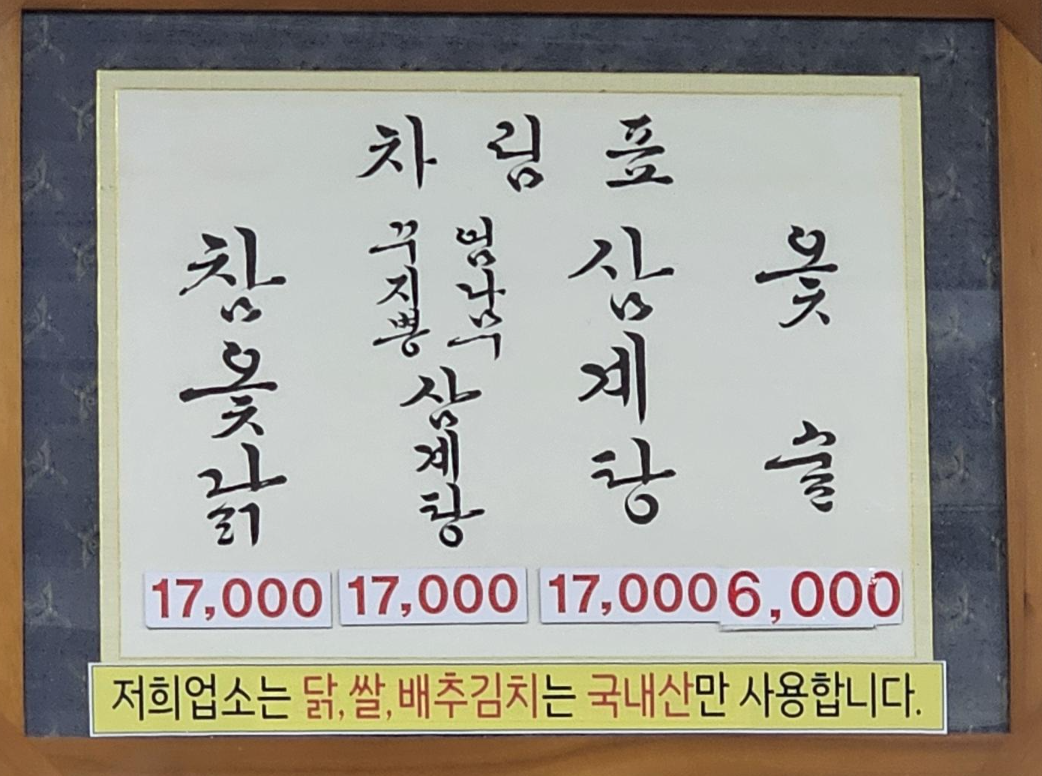 차림표
참옻닭
꾸지뽕 엄나무 삼계탕
삼계탕
옻술
17,000 17,000 17,000 6,000
저희업소는 닭,쌀,배추김치는 국내산만 사용합니다.